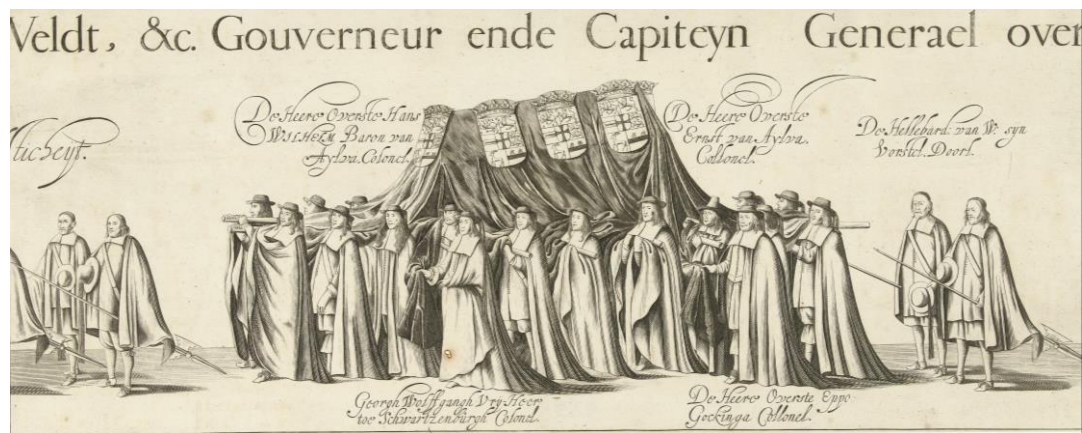 Veldt, &c. Gouverneur ende Capiteyn Generael over
De Heere Overste Hans
WILHELM Baron van
Aylva. Colonel.
De Heere Overste
Ernst van Aylva.
Collonel.
De Hellebard: van W. syn
Vorstel. Doorl.
Georgh Wolffgangh Vry Heer
toe Schwartzenburgh Colonel.
De Heere Overste Eppo
Gockinga Collonel.